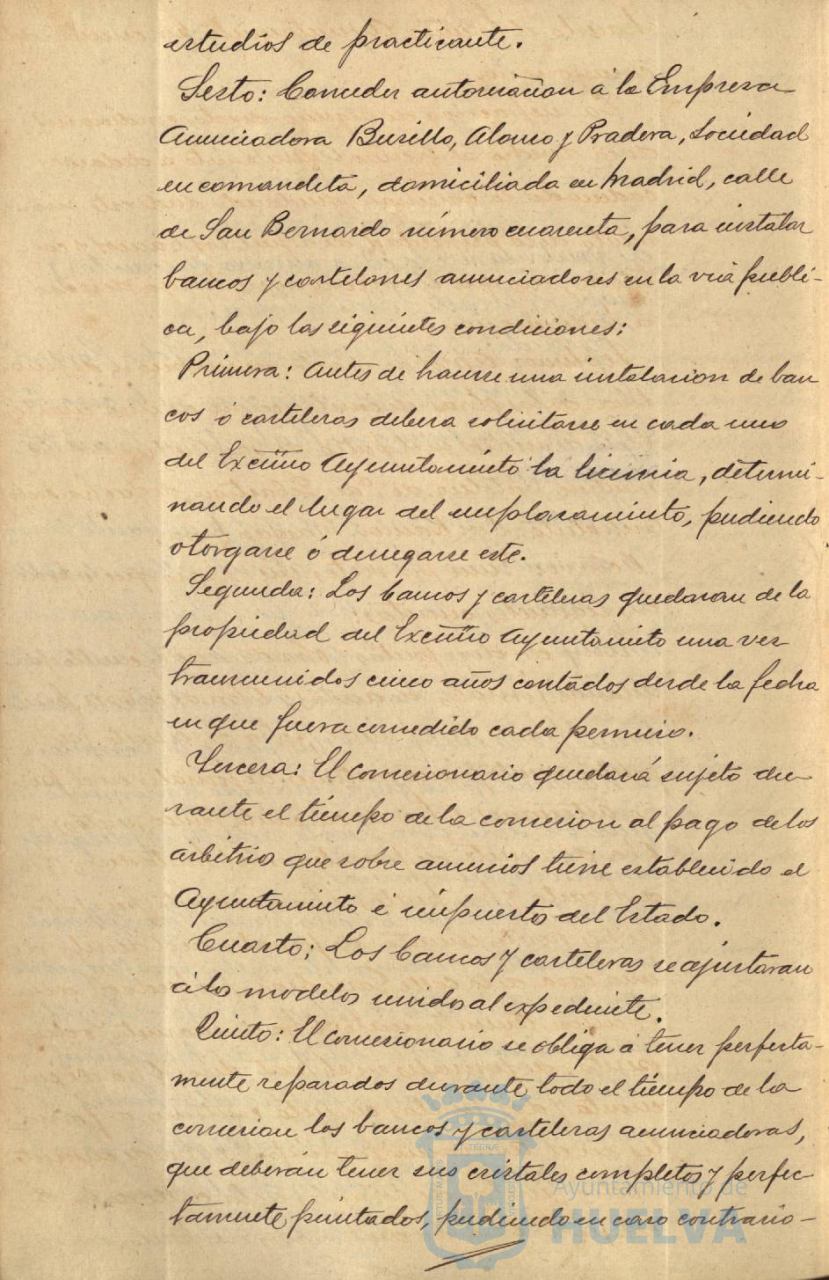 estudios de practicante.
Sesto: Conceder autorización á la Empresa
Anunciadora Busillo, Alonso y Pradera, Sociedad
en comandita, domiciliada en Madrid, calle
de San Bernardo número cuarenta, para instalar
bancos y cartelones anunciadores en la via públi-
ca, bajo las siguientes condiciones:
Primera: Antes de hacerse una instalacion de ban
cos ó carteleras debera solicitarse en cada uno
del Excmo Ayuntamiento la licencia, determi-
nando el lugar del emplasamiento, pudiendo
otorgarse ó denegarse este.
Segunda: Los bancos y carteleras quedaran de la
propiedad del Excmo Ayuntamiento una vez
transcurridos cinco años contados desde la fecha
en que fuera concedido cada permiso.
Tercera: El concesionario quedará sujeto du-
rante el tiempo de la concesion al pago de los
arbitrio que sobre anuncios tiene establecido el
Ayuntamiento é impuesto del Estado.
Cuarto: Los bancos y carteleras se ajustaran
á los modelos unidos al expediente.
Quinto: El concesionario se obliga á tener perfecta-
mente reparados durante todo el tiempo de la
concesion los bancos y carteleras anunciadoras,
que deberán tener sus cristales completos y perfec
tamente pintados, pudiendo en caso contrario-
Ayuntamiento de
HUELVA